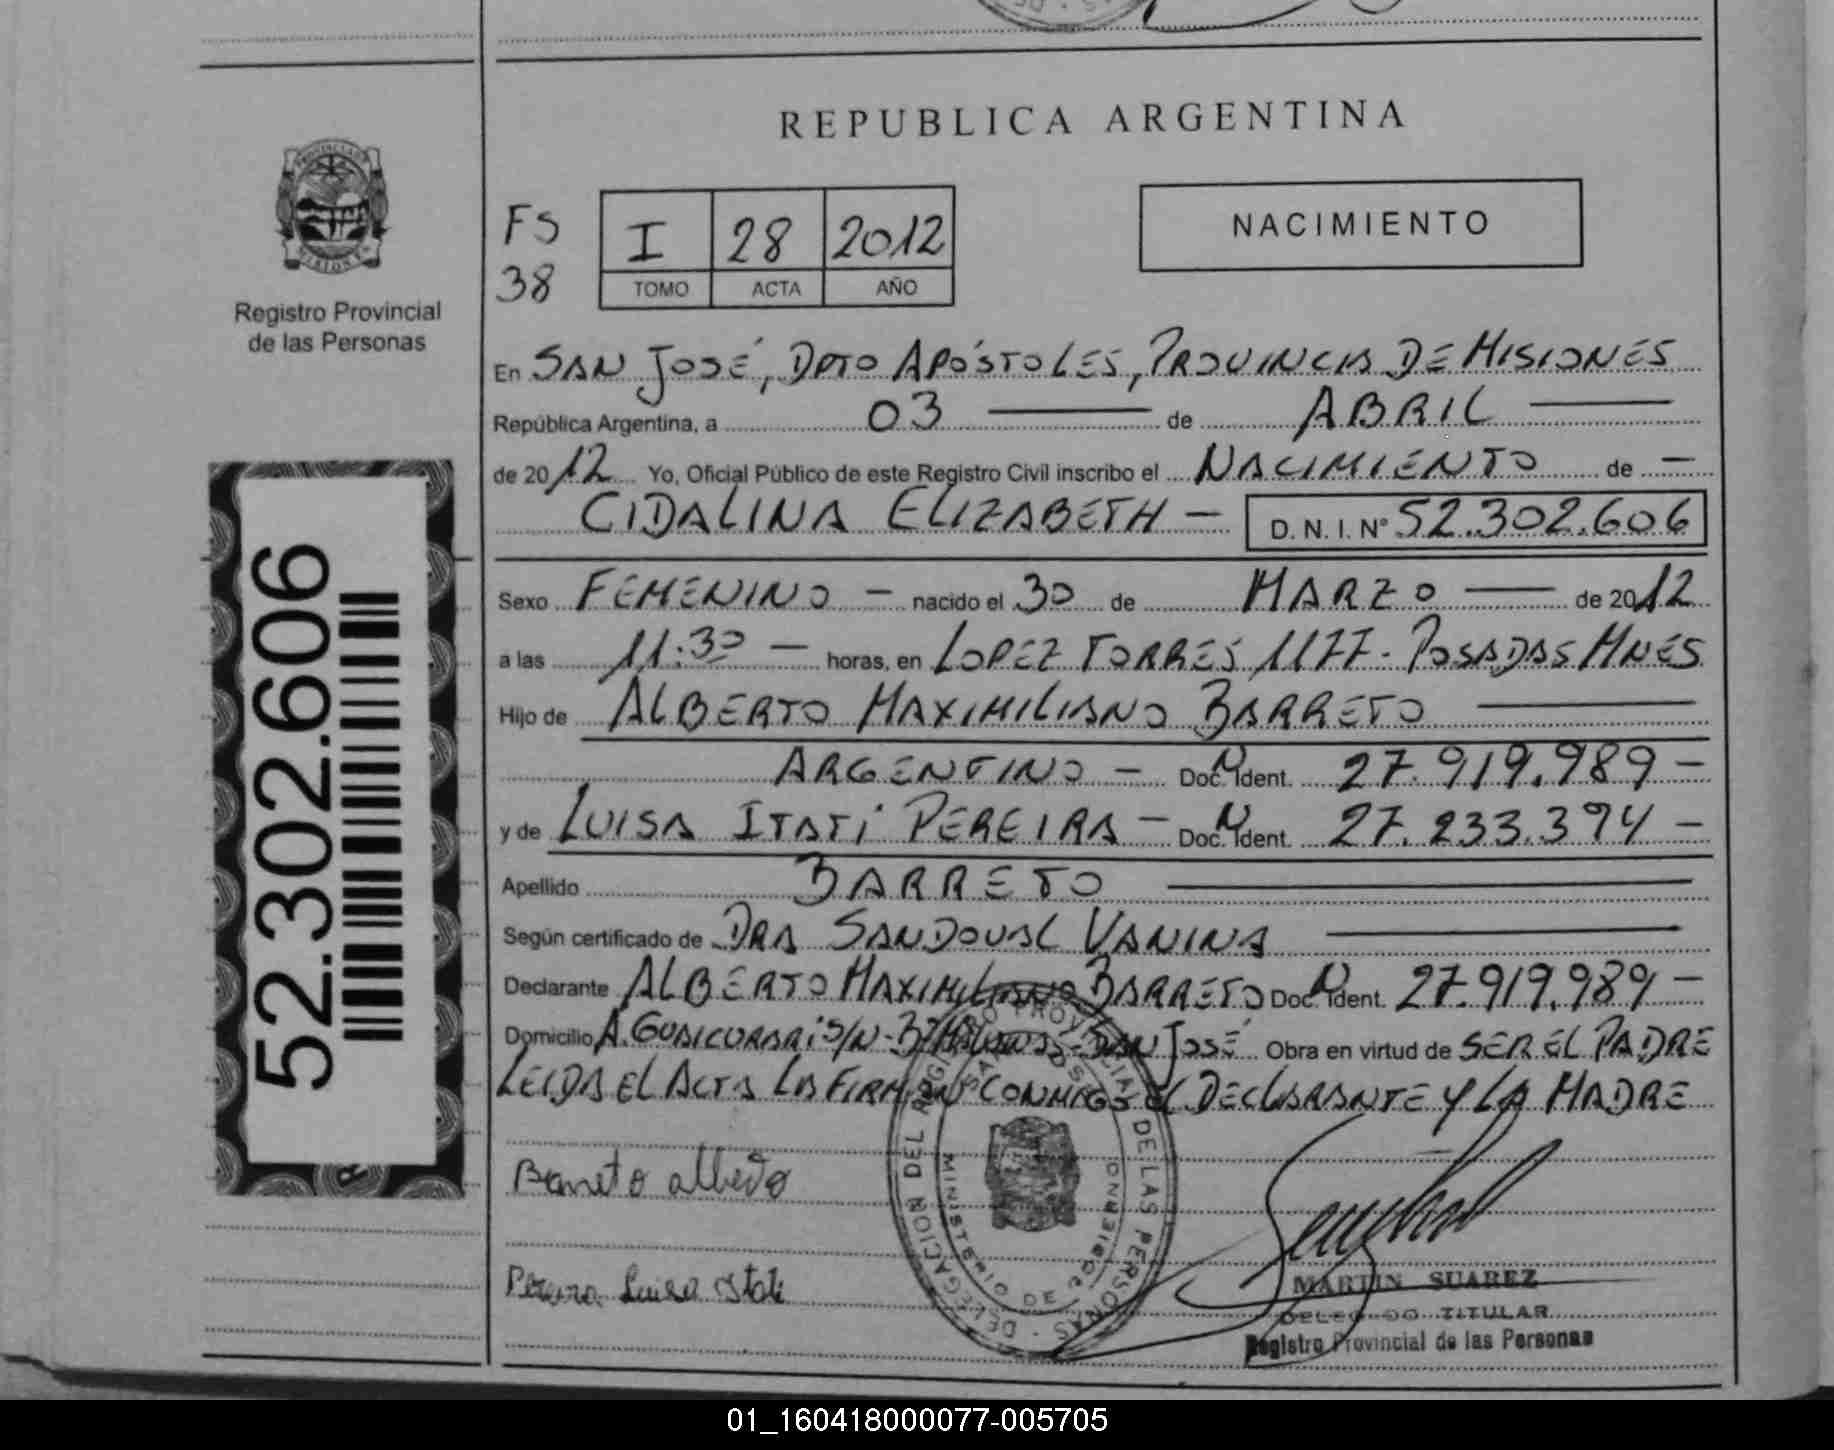 REPUBLICA ARGENTINA
PROVINCIA DE MISIONES
Registro Provincial
de las Personas
FS
38
I 28 2012
TOMO ACTA AÑO
NACIMIENTO
En SAN JOSÉ, DPTO APÓSTOLES, PROVINCIA DE MISIONES
República Argentina, a 03 de ABRIL
de 2012 Yo, Oficial Público de este Registro Civil inscribo el NACIMIENTO de —
CIDALINA ELIZABETH — D. N. I. Nº 52.302.606
Sexo FEMENINO — nacido el 30 de MARZO de 2012
a las 11:30 — horas, en LOPEZ TORRES 1177 - POSADAS MNES
Hijo de ALBERTO MAXIMILIANO BARRETO
ARGENTINO — Doc. N Ident. 27.919.989 —
y de LUISA ITATI PEREIRA — Doc. N Ident. 27.233.394 —
Apellido BARRETO
Según certificado de DRA SANDOVAL VANINA
Declarante ALBERTO MAXIMILIANO BARRETO Doc. N Ident. 27.919.989 —
Domicilio A. GUACURARI S/N - SAN JOSÉ Obra en virtud de SER EL PADRE
LEIDA EL ACTA LA FIRMAN CONMIGO EL DECLARANTE Y LA MADRE
Barreto Alberto
Pereira Luisa Itati
DELEGACION DEL REGISTRO PROVINCIAL DE LAS PERSONAS
SAN JOSE
MINISTERIO DE GOBIERNO
MARTIN SUAREZ
DELEGADO TITULAR
Registro Provincial de las Personas
52.302.606
01_160418000077-005705